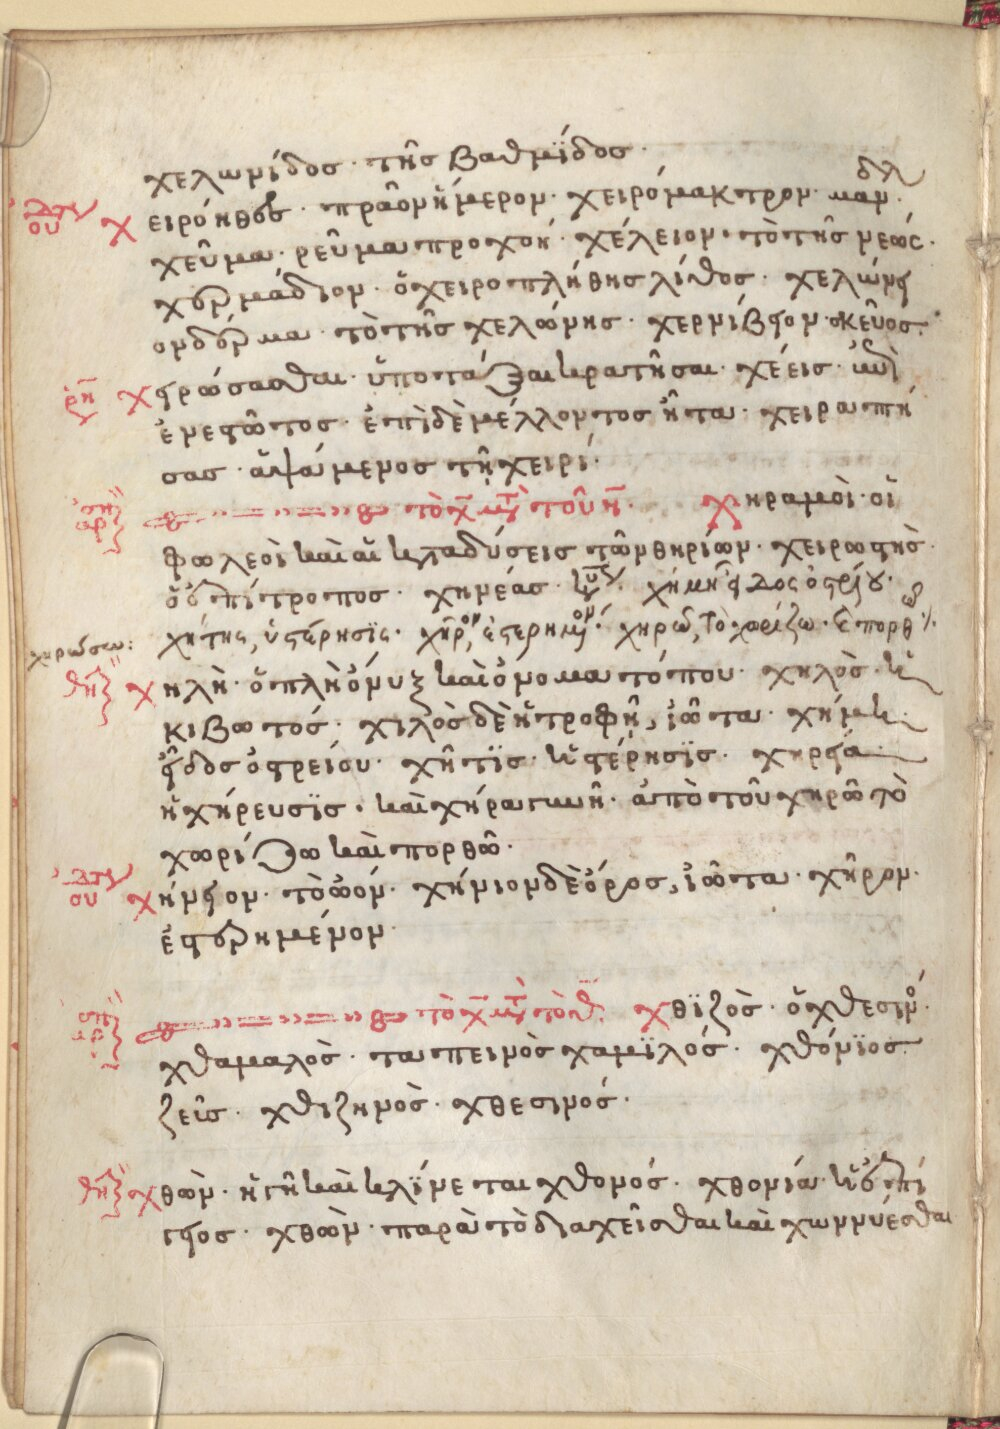 χελωνίδος· τῆς βαθμΐδος·
χειρόηθες· πρᾶον ἥμερον· χειρόμακτρον· μαν
χεῦμα· ρεῦμα προχοή· χέλειον· τὸ τῆς νεώς·
χερμάδιον· ὁ χειροπλήθης λίθος· χελών
ον δέρμα· τὸ τῆς χελώνης· χερνίβιον· σκεῦος·
ρη χειρώσασθαι· ὑποτάξαι κρατῆσαι· χέεις· ἐπὶ
ἐνεστῶτος· ἐπὶ δὲ μέλλοντος ἦτα· χειραπτή
σας· ἁψάμενος τῇ χειρί·
τὸ χ μτ τοῦ η· χηραμοὶ· οἱ
φωλεοὶ καὶ αἱ καταδύσεις τῶν θηρίων· χειρωστὴς·
ὁ ἐπίτροπος· χηνέας· χήμη εἶδος ὀστρέου·
χήτης, ὑστέρησϊς· χηρῶ, τὸ χωρίζω·
χηρώσω:
θη χηλὴ· ὁπλὴ ὄνυξ καὶ ὄνομα τόπου· χηλὸς· ἡ
κιβωτός· χιλὸς δὲ ἡ τροφὴ, ἰῶτα· χήμη·
εἶδος ὀστρείου· χῆτϊς· ἡ στέρησϊς· χηρεία·
ἡ χήρευσϊς· καὶ χήρα γυνὴ· ἀπὸ τοῦ χηρῶ τὸ
χωρίζω καὶ πορθῶ·
ου χήνειον· τὸ ὠόν· χήνιον δὲ ὄρος, ἰῶτα· χῆρον·
ἐστερημένον·
τὸ χ μτ τὸ θ· χθϊζὸς· ὁ χθεσινό·
χθαμαλὸς· ταπεινὸς χαμϊλός· χθόνϊος·
ζεῦς· χθιζηνὸς· χθεσινός·
θη χθὼν· ἡ γῆ καὶ κλίνεται χθονός· χθονία· ἡ ἐπί
γειος· χθὼν· παρὰ τὸ διαχεῖσθαι καὶ χωννύεσθαι